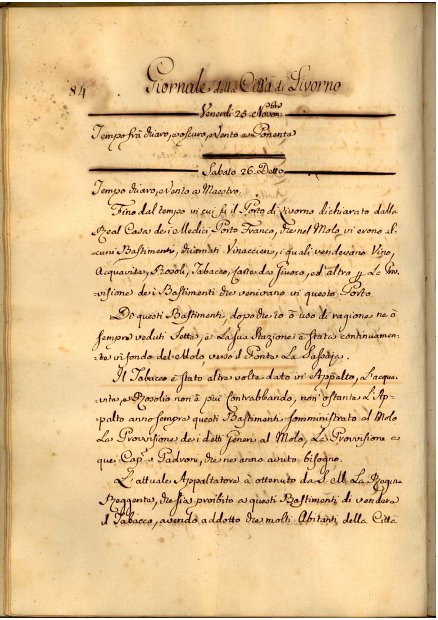 84
Giornale della Città di Livorno
Venerdì 25. Novem.bre
Tempo frà chiaro, e oscuro, e Vento a Ponente
Sabato 26. Detto
Tempo chiaro, e Vento a Maestro.
Fino dal tempo in cui fù il Porto di Livorno dichiarato dalla
Real Casa dei Medici Porto Franco, che nel Molo vi erono al-
cuni Bastimenti, chiamati Vinaccieri, i quali vendevano Vino,
Acquavite, Rosoli, Tabacco, Carte da Giuoco, ed altro p. La Pro-
visione dei Bastimenti che venivano in questo Porto
De questi Bastimenti, dopo che io ò uso di ragione ne ò
sempre veduti Sette, e La sua Stazione è stata continuamen-
te in fondo del Molo, verso il Ponte La Sassaja.
Il Tabacco è stato altre volte dato in Appalto, L'acqua-
vite, e Rosolio non è più Contrabbando, non ostante L'Ap-
palto anno sempre questi Bastimenti somministrato al Molo
La Provvisione dei detti generi al Molo, La Provvisione a
quei Cap. e Padroni, che ne anno avuto bisogno.
L'attuale Appaltatore à ottenuto da S. M. La Regina
Reggente, che sia proibito a questi Bastimenti di vendere
il Tabacco, avendo addotto che molti Abitanti della Città